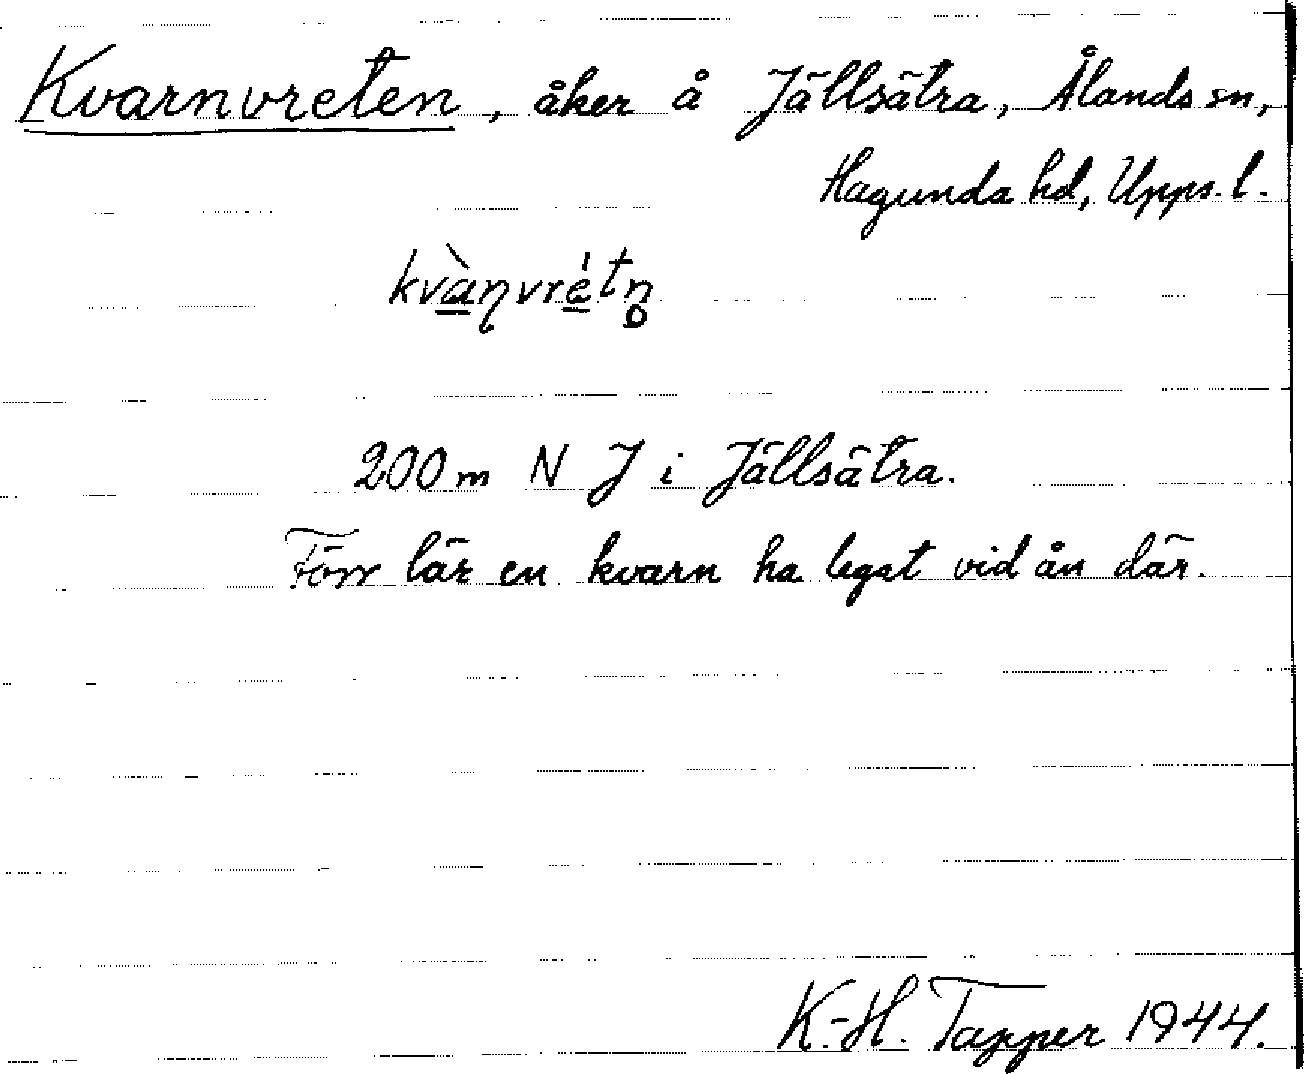 Kvarnvreten, åker å Jällsätra, Ålands sn,
Hagunda hd, Upps. l.
kvàɳvrétn̥
200 m N J i Jällsätra.
Förr lär en kvarn ha legat vid ån där.
K.-H. Tapper 1944.